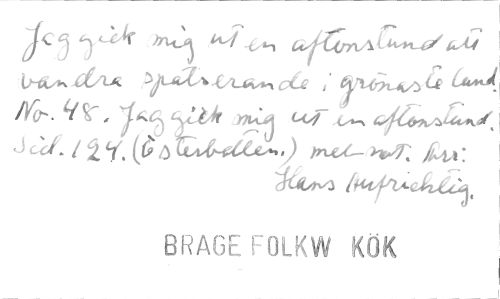 Jag gick mig ut en aftonstund att
vandra spatserande i grönaste lund.
No. 48. Jag gick mig ut en aftonstund.
Sid. 124. (Österbotten.) mel. not. Arr:
Hans Aufrichtig.
BRAGE FOLKW KÖK